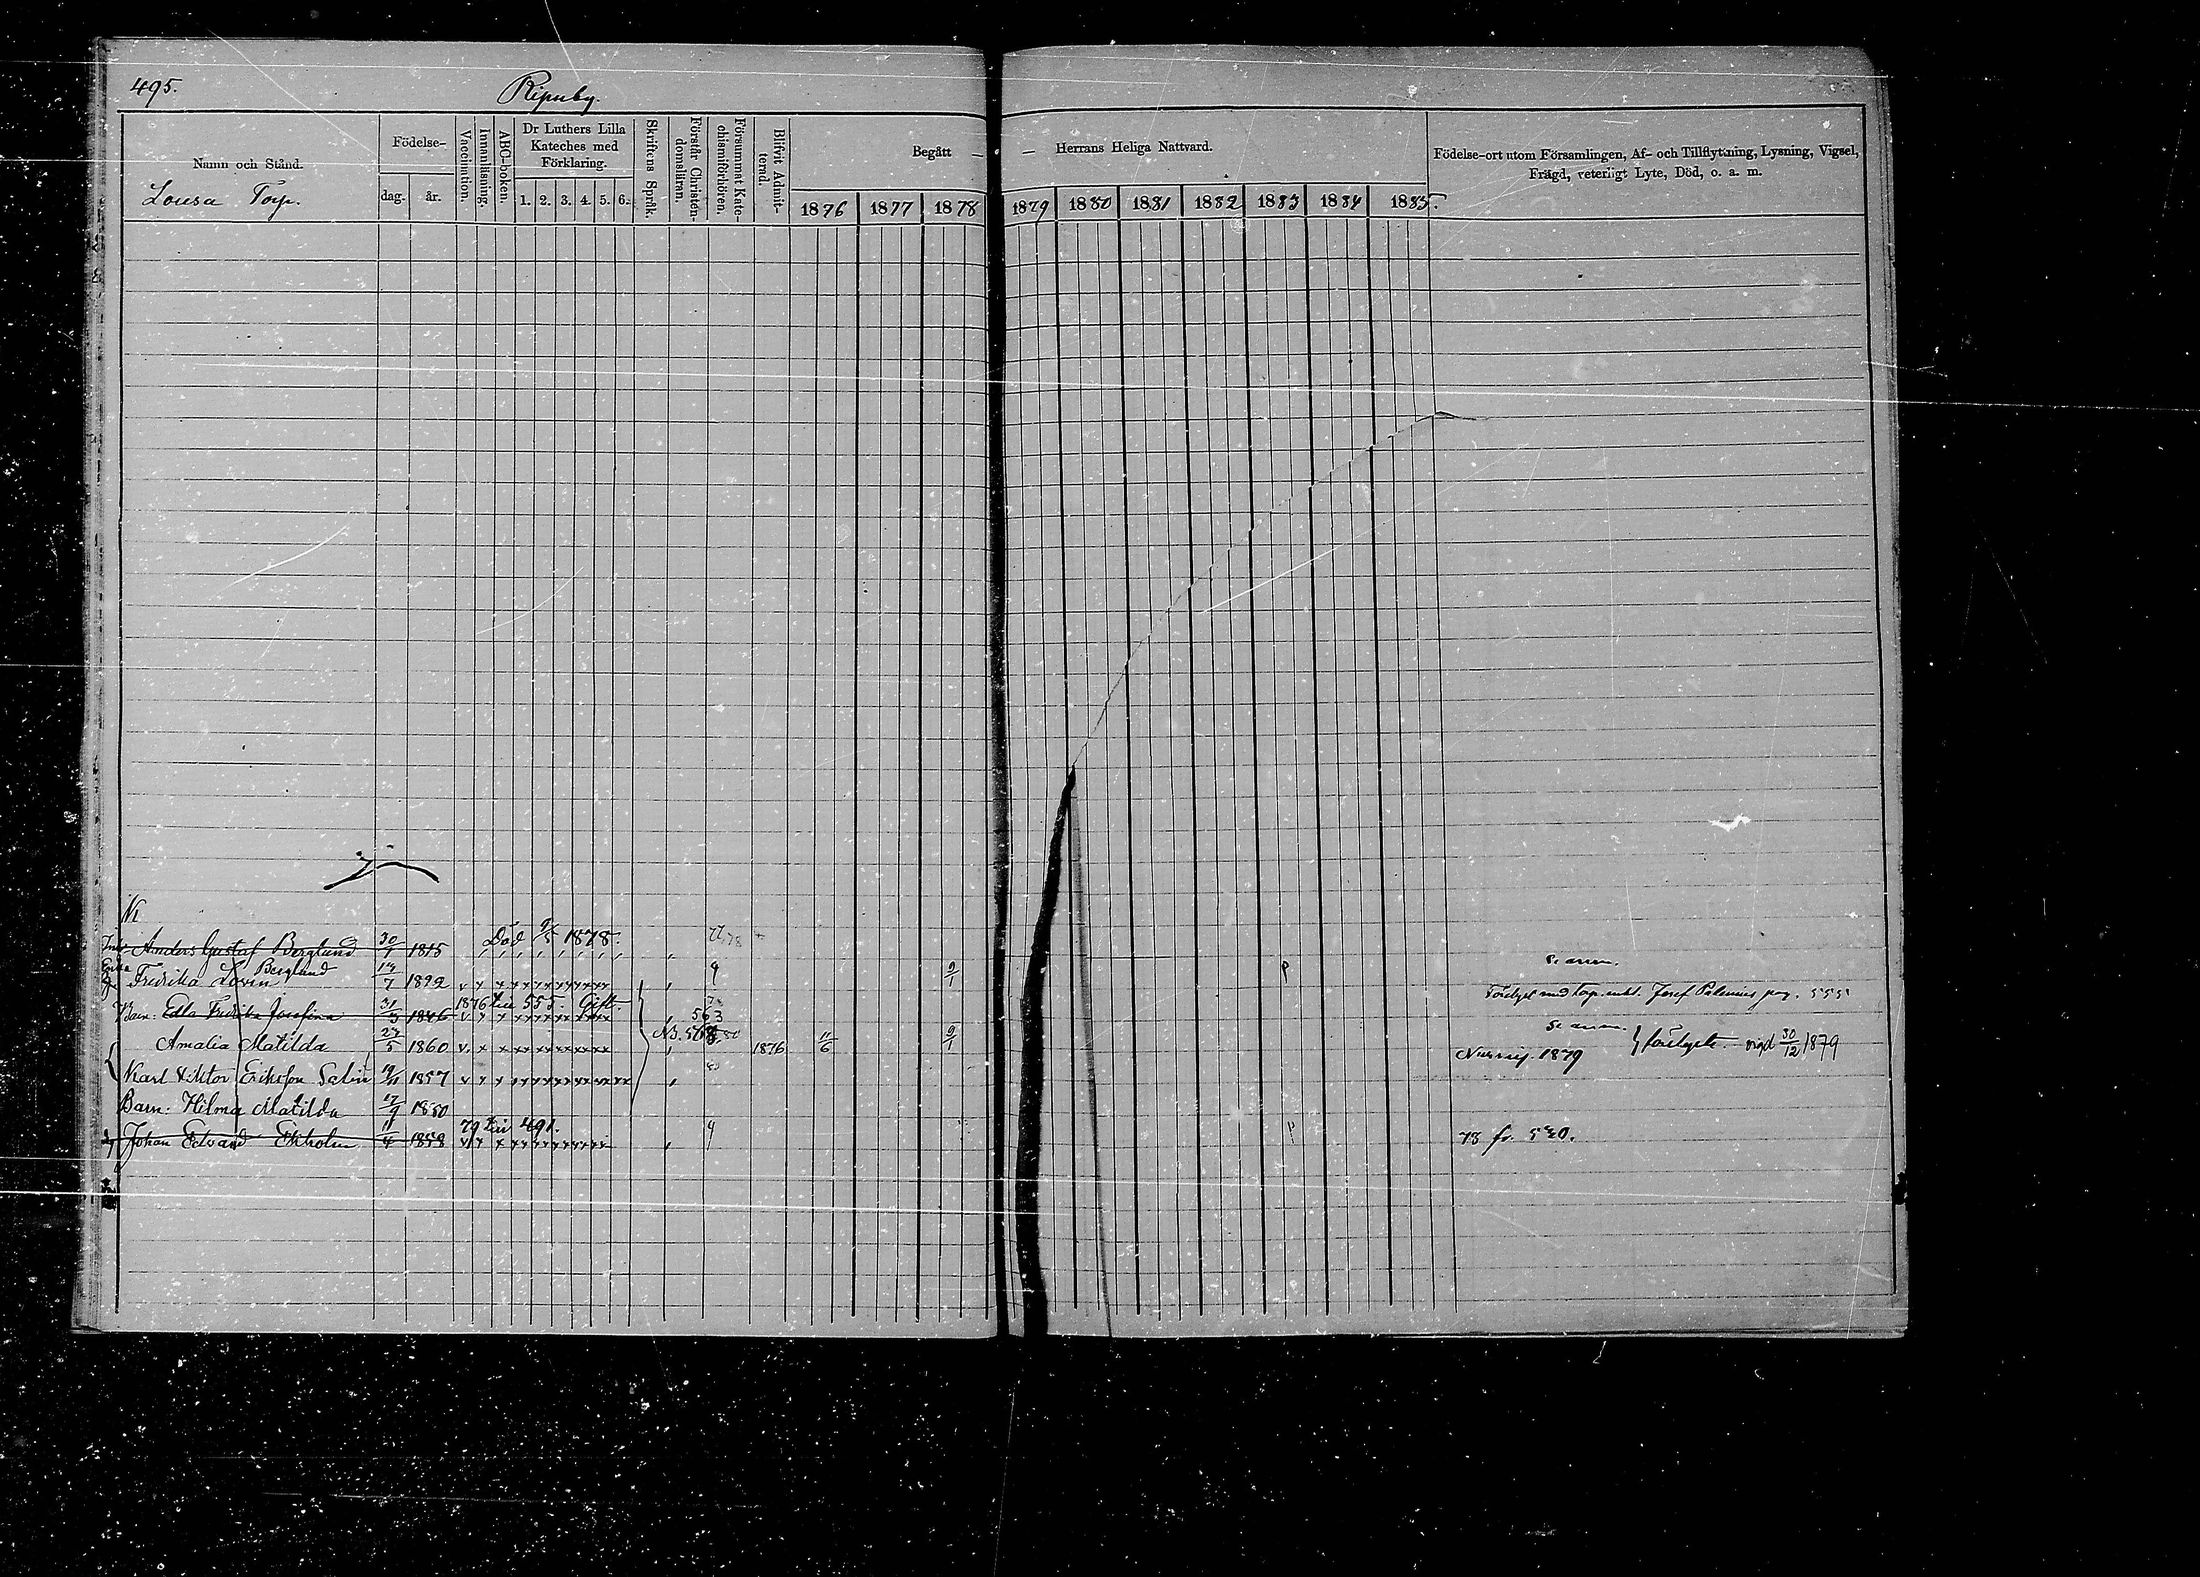 495.
Ripuby.
Namn och Stånd.
Lousa Torp.
Födelse-
dag. år.
Vaccination.
Innanläsning.
ABC-boken.
Dr Luthers Lilla
Kateches med
Förklaring.
1. 2. 3. 4. 5. 6.
Skriftens Språk.
Förstår Christen-
domsläran.
Försummat Kate-
chismiförhören.
Blifvit Admit-
terad.
Begått — — Herrans Heliga Nattvard.
1876 1877 1878 1879 1880 1881 1882 1883 1884 1885.
Födelse-ort utom Församlingen, Af- och Tillflyttning, Lysning, Vigsel,
Frägd, veterligt Lyte, Död, o. a. m.
Anders Gustaf Berglund 30/7 1815 Död 9/5 1878.
Enka Fredrika Lovin Berglund
Barn: Edla Fredrika Josefina 31/3 1846 1876 till 555. Gift 563
Amalia Matilda 27/5 1860 1876 11/6 9/1
Karl Viktor Eriksson Salin 1857
Nursij. 1879 förlyste. vigd 30/12 1879
Barn: Hilma Matilda 17/9 1880
Johan Edvard Ekholm 11/4 1858 79 till 491. 78 fr. 520.